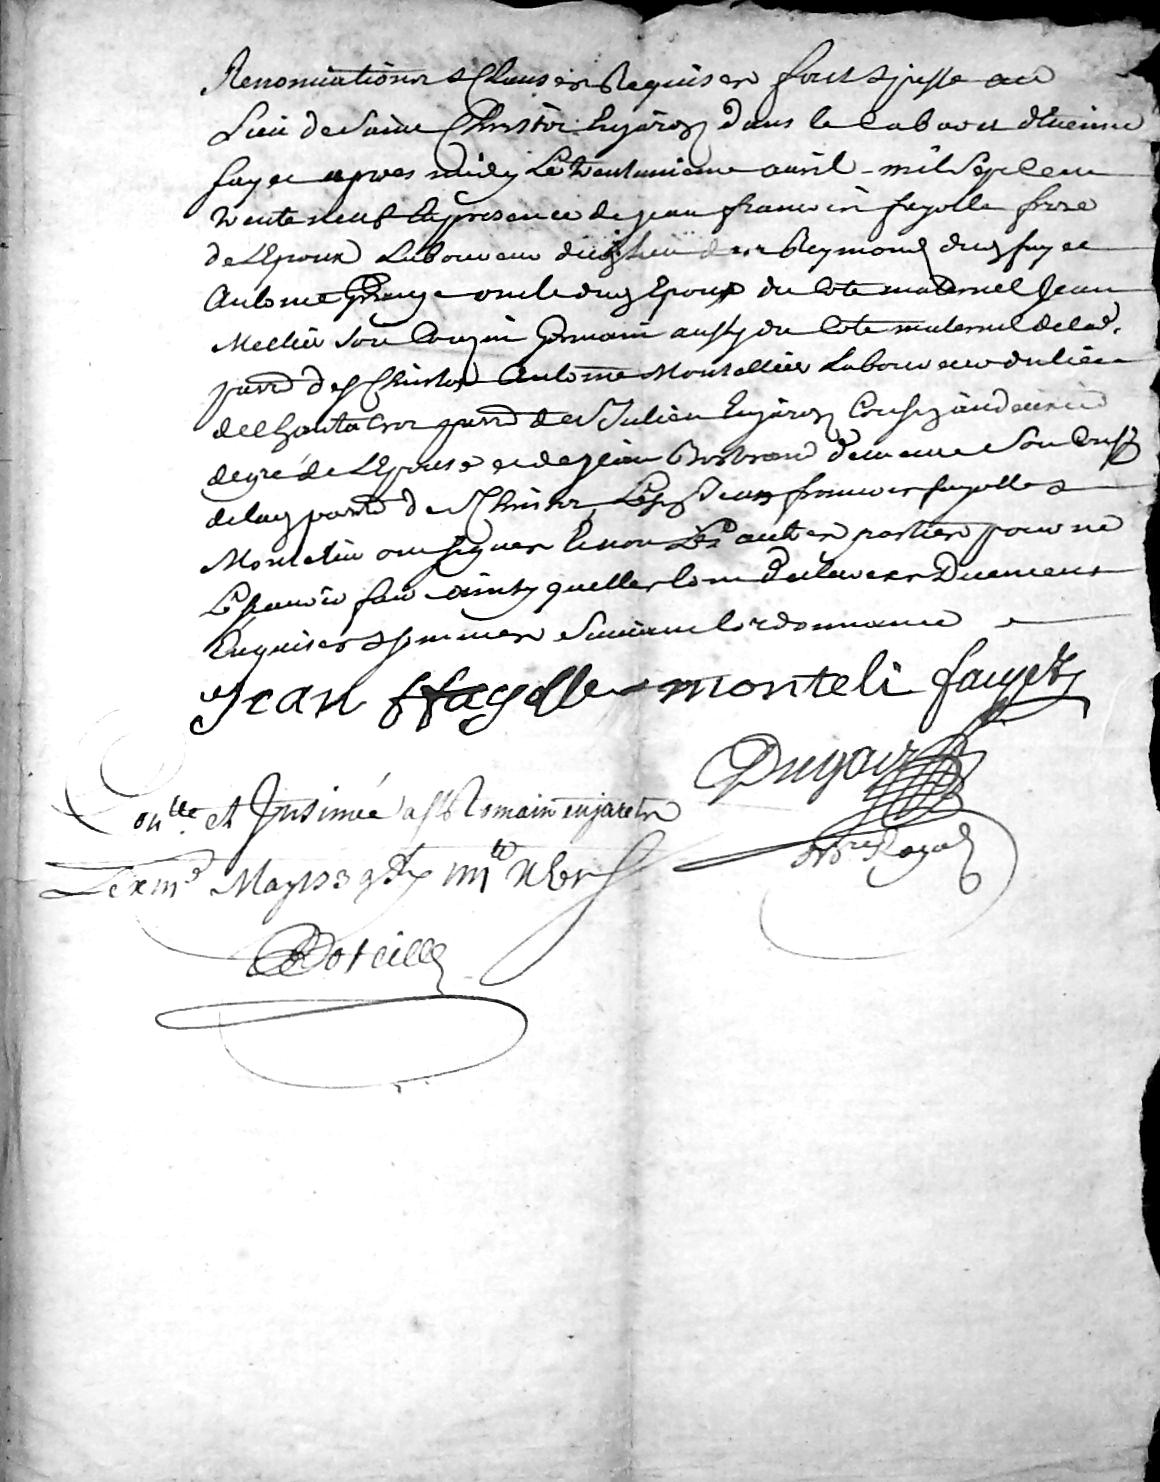 Renonciations & Clauses Requises fait & passé au
Lieu de Saint Christo en Jarez dans le cabaret d'Etienne
fayet apres midy Le trentunieme avril mil Sept Cent
trente neuf En presence de jean francois fayolle frere
de L'Epoux Laboureur dudit lieu de Reymond dud fayet
Antoine Grange oncle dud Epoux du Coté maternel Jean
Mellier son Couzin Germain aussy du Coté maternel de lad.
parr. de St Christo Antoine Montellier Laboureur du lieu
de parr. de St Julien En jarez Cousin au
degré de L'Epouse et de jean Bertrand de meme Son Cousin
de lad parr. de St Christo, Lesd Jean francois fayolle &
Montelier ont signer Et non Les autres parties pour ne
Le Scavoir faire ainsy quelles l'ont declarer Duement
Enquises & sommer Suivant l'ordonnance
jean ffayolle monteli fayet
Dugair
Con.lle et Insinué a St Romain en jarets
Le xm.e May 1739
nore Royal
Boteille